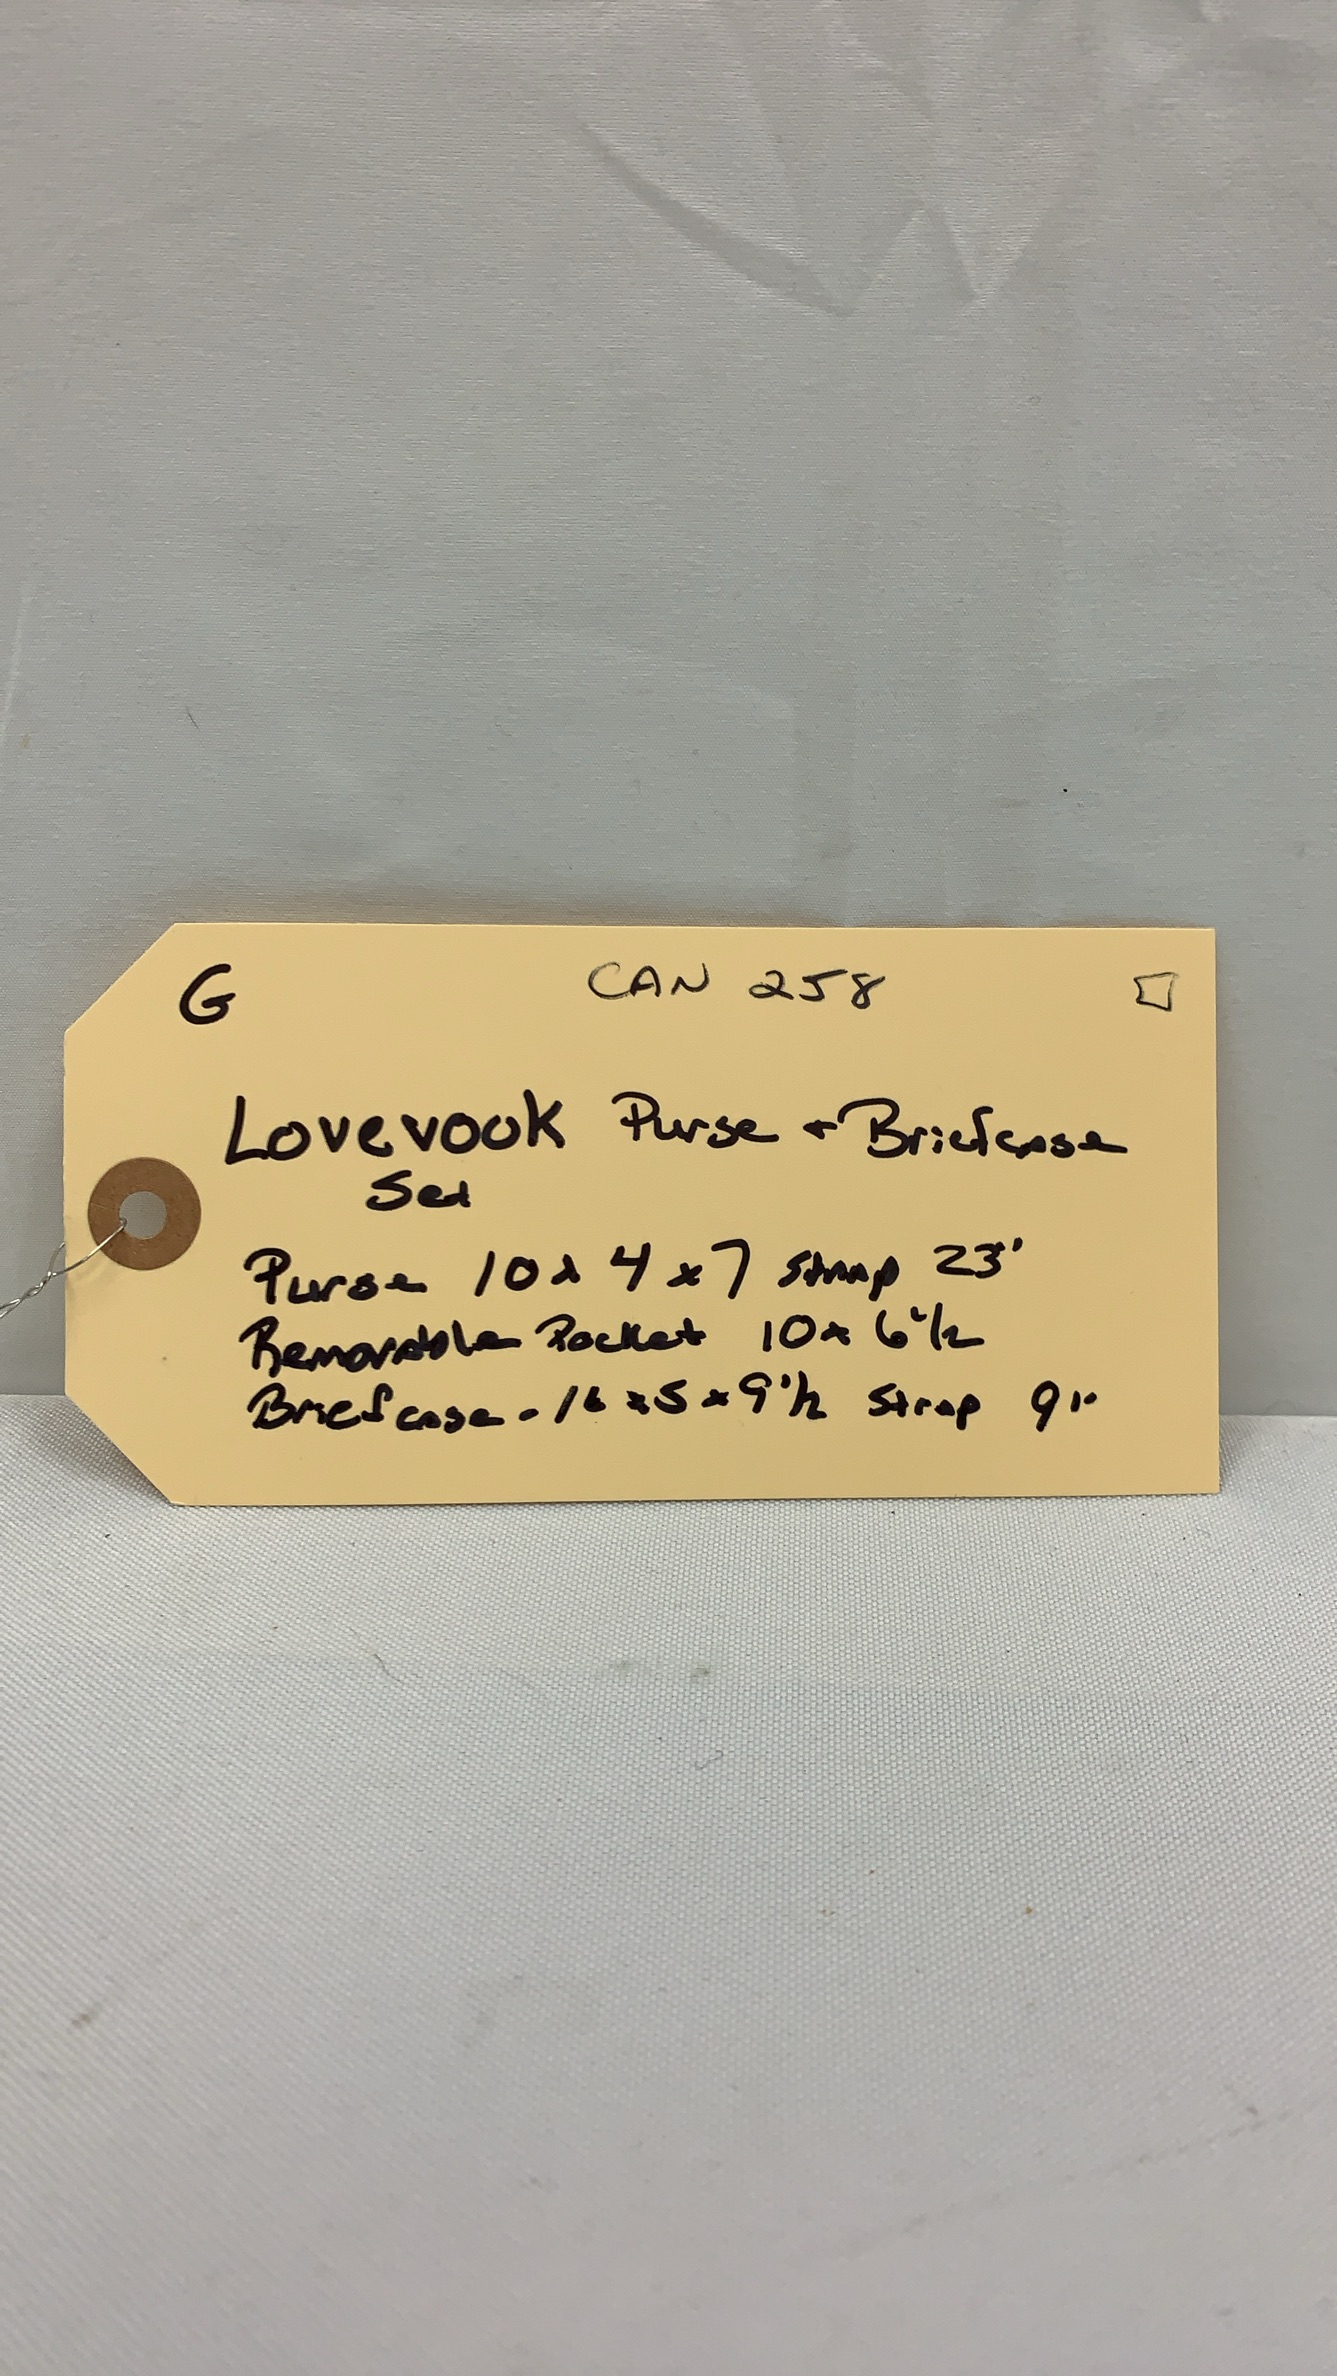 G CAN 258
Lovevook Purse + Briefcase
Set
Purse 10 x 4 x 7 Strap 23"
Removable Pocket 10 x 6 1/2
Briefcase - 16 x 5 x 9 1/2 Strap 9"